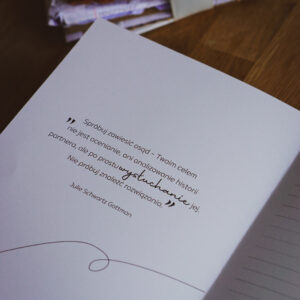 „Spróbuj zawiesić osąd – Twoim celem
nie jest ocenianie, ani analizowanie historii
partnera, ale po prostu wysłuchanie jej.
Nie próbuj znaleźć rozwiązania.”
Julie Schwartz Gottman